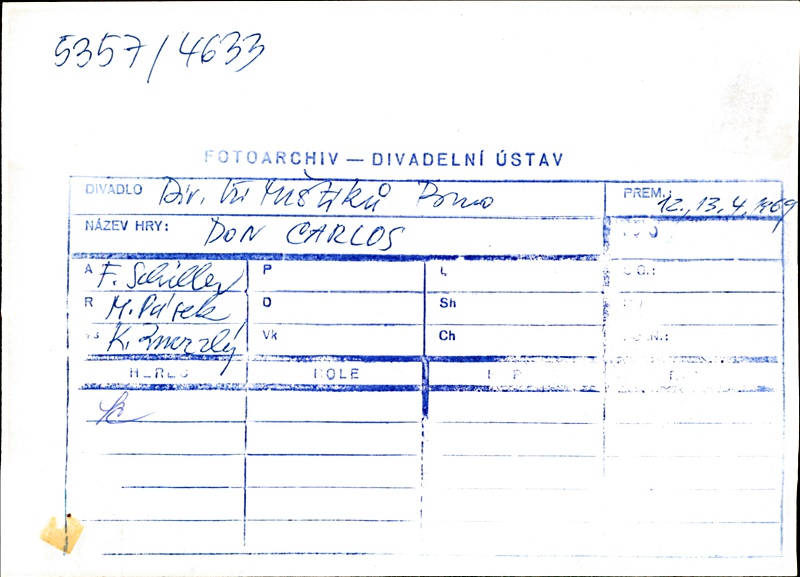 5357/4633
FOTOARCHIV — DIVADELNÍ ÚSTAV
DIVADLO Div. bří Mrštíků Brno PREM.: 12., 13. 4. 1969
NÁZEV HRY: DON CARLOS
A F. Schiller P L
R M. Pásek D Sh
K. Zmrzlý Vk Ch
HEREC ROLE